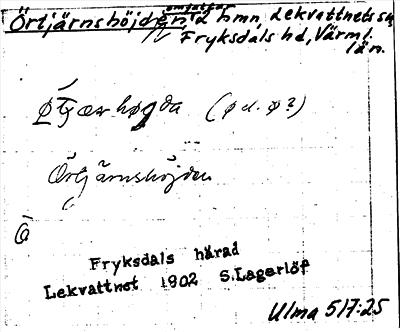 Örtjärnshöjden, 2 hmn, Lekvattnets sn,
Fryksdals hd, Värml.
län.
(ø el. ø?)
Örtjärnshöjden
Fryksdals härad
Lekvattnet 1902 S. Lagerlöf
Ulma 517:25